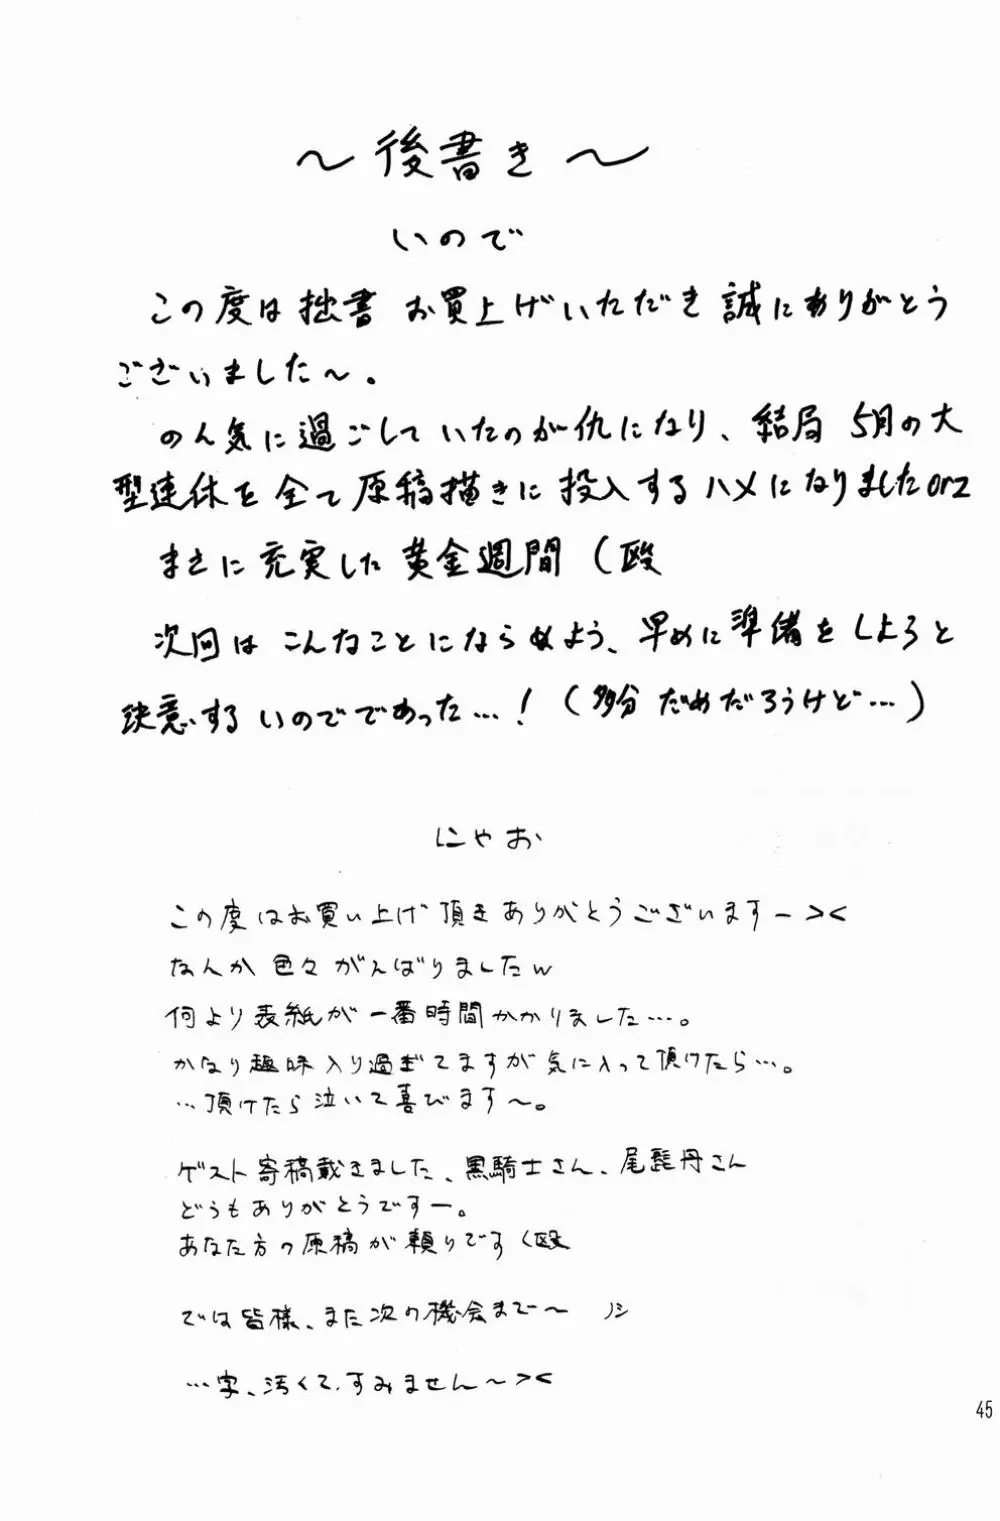 ～後書き～
いので
この度は拙書 お買上げいただき誠にありがとう
ございました～。
のん気に過ごしていたのが仇になり、結局 5月の大
型連休を全て原稿描きに投入するハメになりましたorz
まさに充実した黄金週間（殴
次回はこんなことにならぬよう、早めに準備をしようと
決意するいのでであった…！（多分だめだろうけど…）
にゃお
この度はお買い上げ頂きありがとうございますー><
なんか色々がんばりましたw
何より表紙が一番時間かかりました…。
かなり趣味入り過ぎてますが気に入って頂けたら…。
…頂けたら泣いて喜びます～。
ゲスト寄稿戴きました、黒騎士さん、尾髭丹さん
どうもありがとうですー。
あなた方の原稿が頼りです（殴
では皆様、また次の機会まで～ ノシ
…字、汚くてすみません～><
45